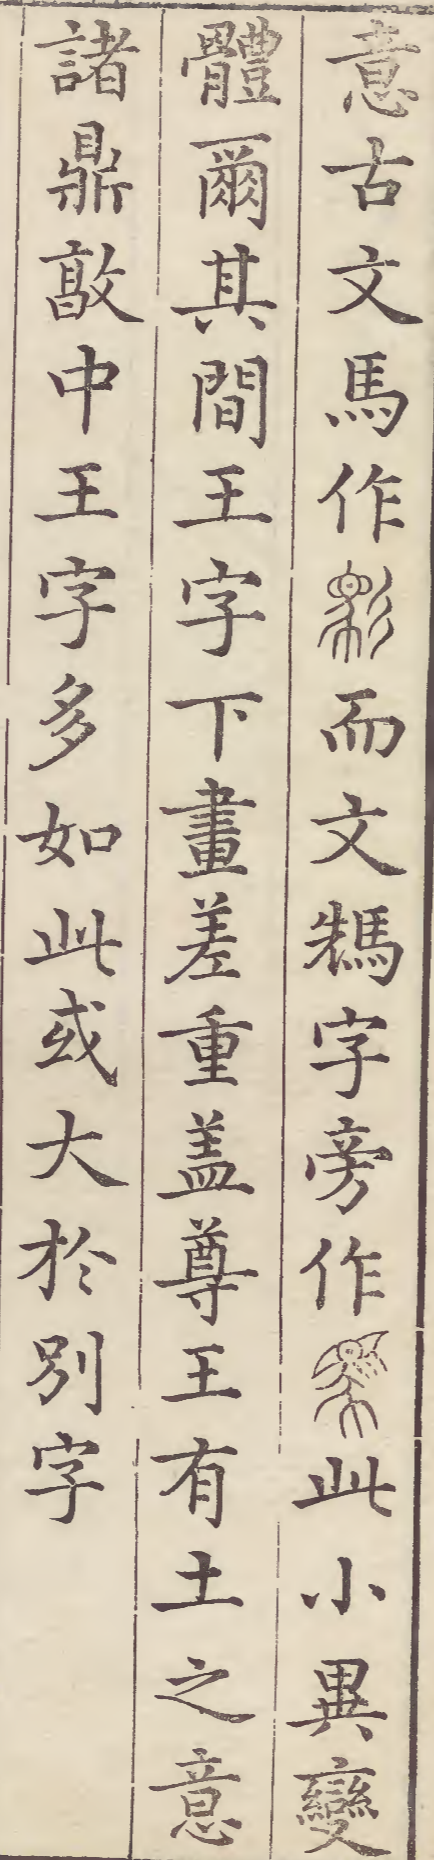 意古文馬作而文䊞字旁作此小異變
體爾其間王字下畫差重盖尊王有土之意
諸鼎敼中王字多如此或大於別字